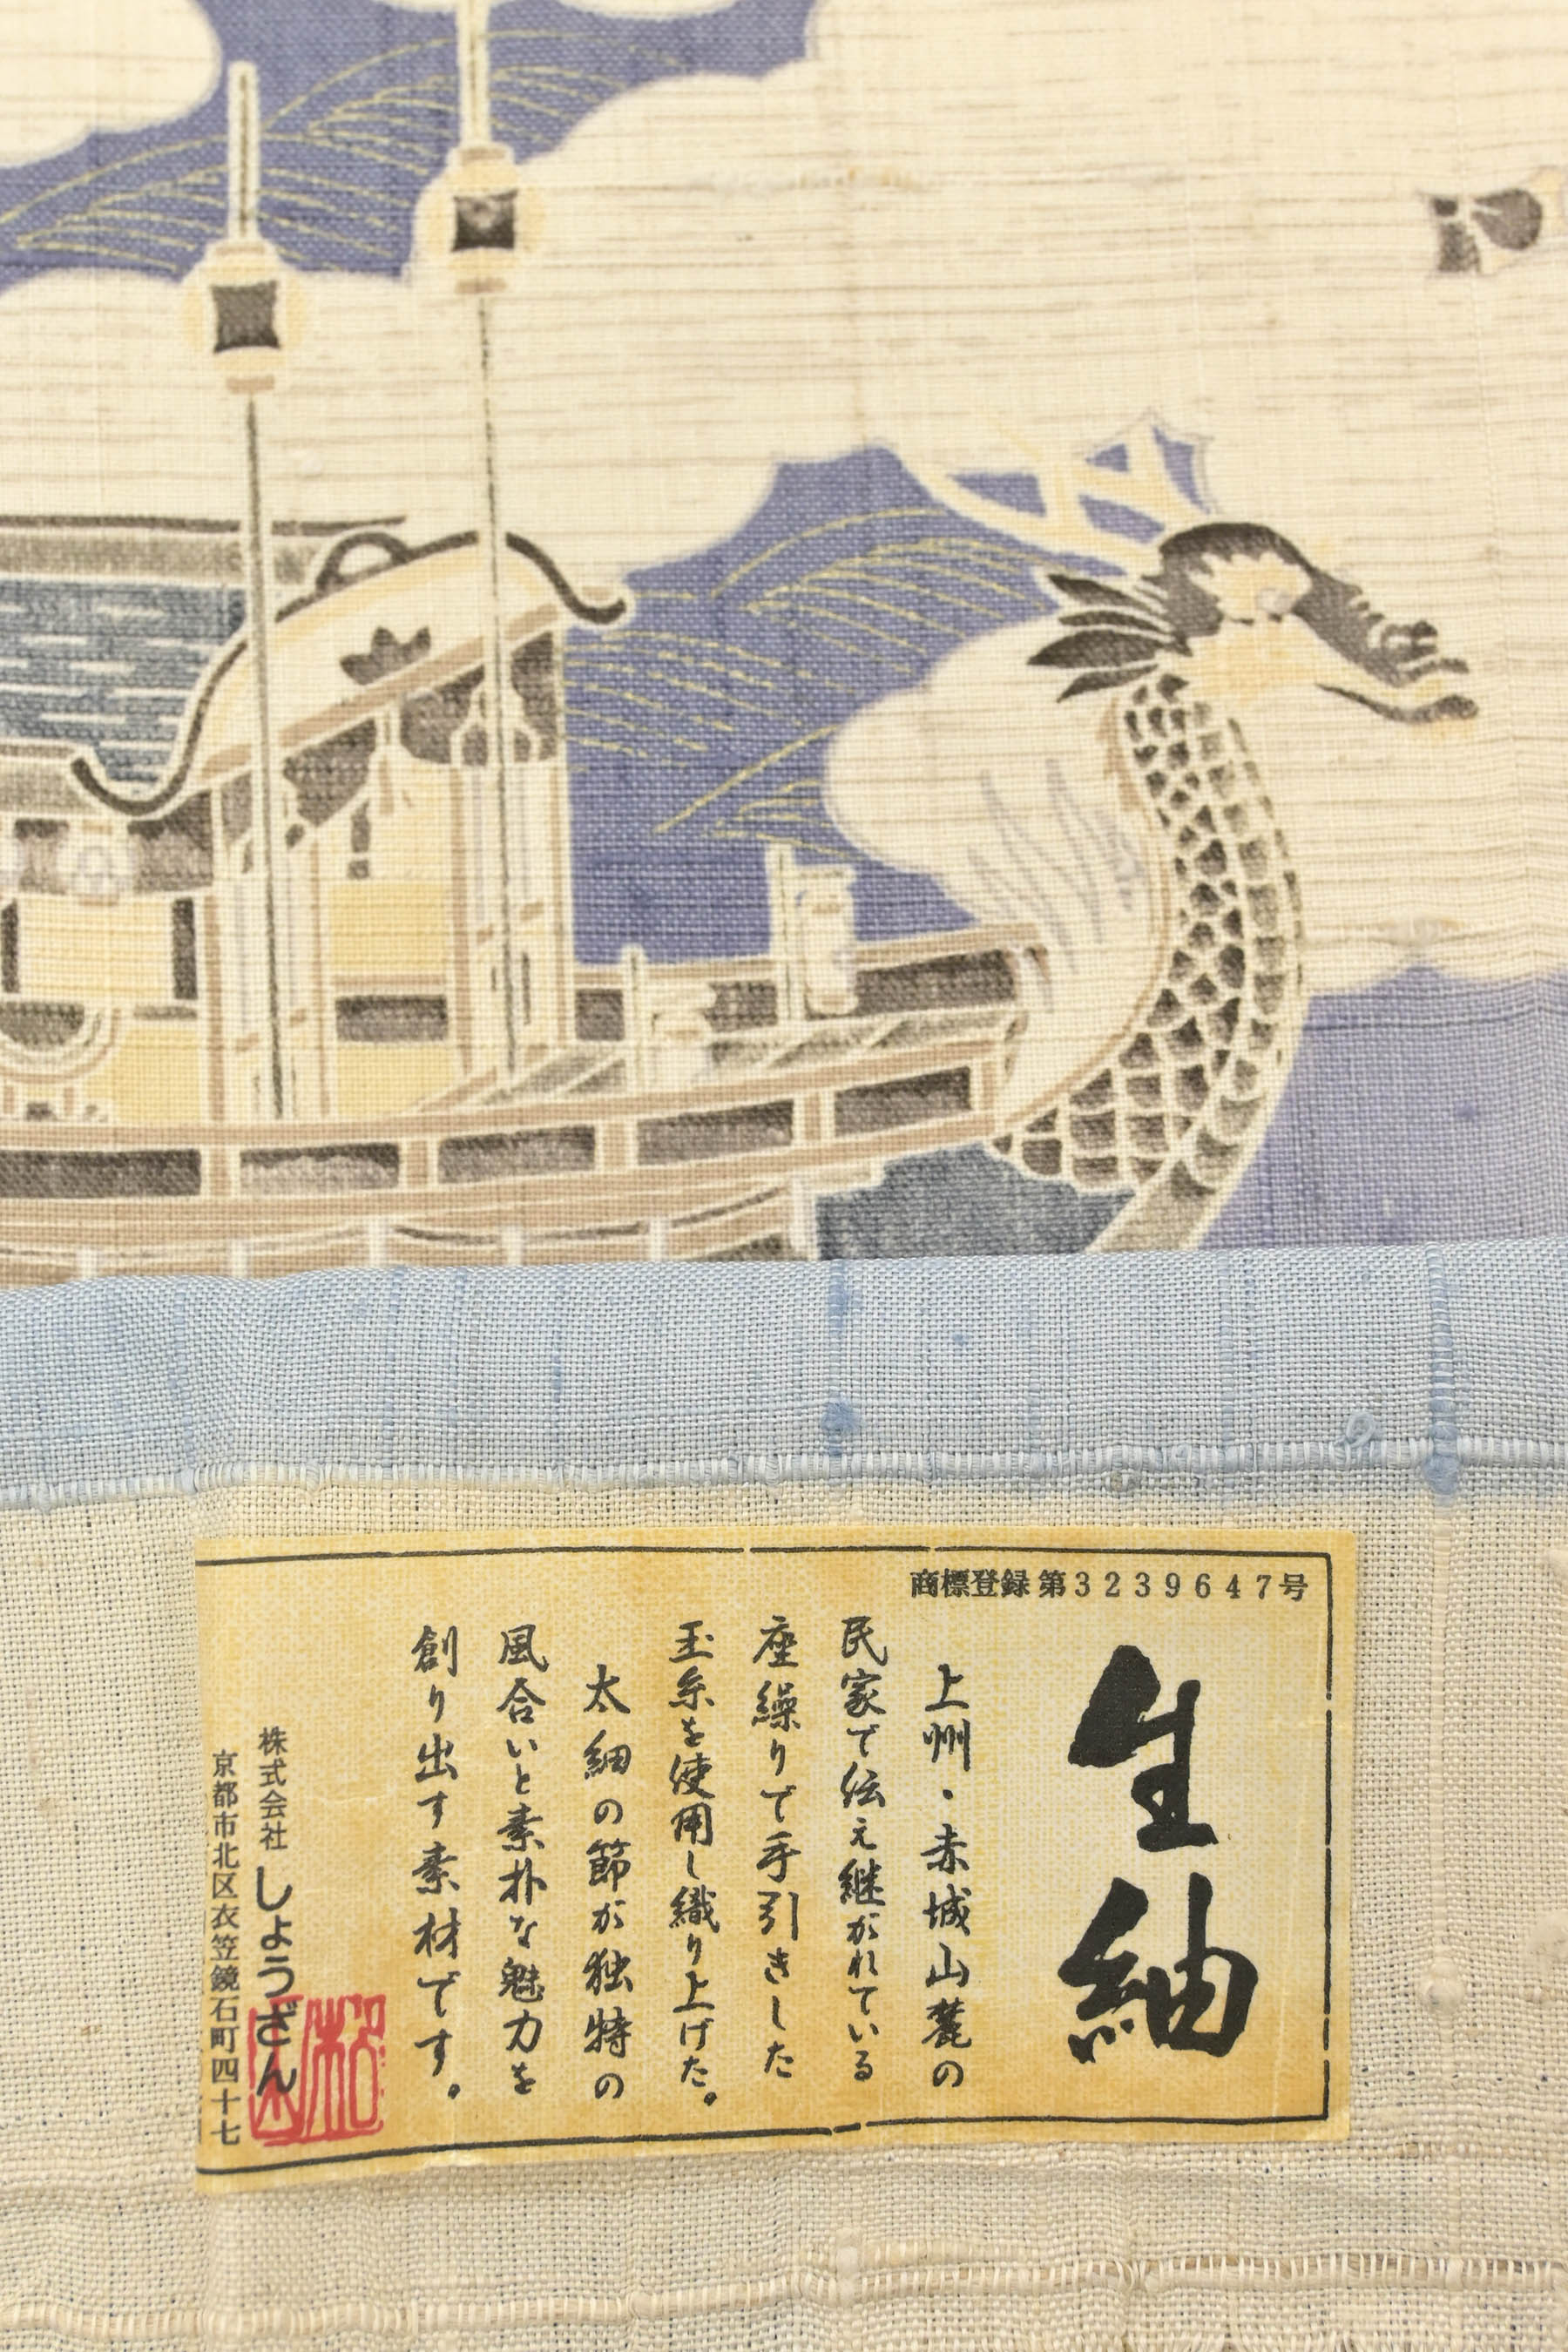 商標登録第3239647号
生紬
上州・赤城山麓の
民家で伝え継がれている
座繰りで手引きした
玉糸を使用し織り上げた。
太細の節が独特の
風合いと素朴な魅力を
創り出す素材です。
株式会社しょうざん
京都市北区衣笠鏡石町四十七